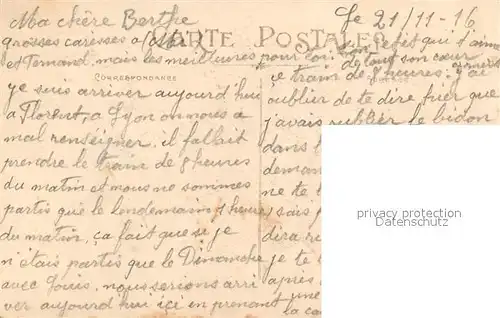 Le 21/11-16
Ma chère Berthe
grosses caresses a
CARTE POSTALE
et Fernand, mais les meilleures pour toi. ton petit qui t'aime
de tout son cœur
CORRESPONDANCE
je suis arriver aujourd'hui
a Florent, a Lyon on nous a
mal renseigner, il fallait
prendre le train de 8 heures
du matin et nous ne sommes
partis que le lendemain 7 heures
du matin, ça fait que si je
n'étais partis que le Dimanche
avec Louis, nous serions arri
ver aujourd'hui ici en prenant
le train de 8 heures. j'ai
oublier de te dire hier que
j'avais oublier le bidon
dans l
deman
ne te l
sais p
dira re
je te
après
une
la ca
privacy protection
Datenschutz